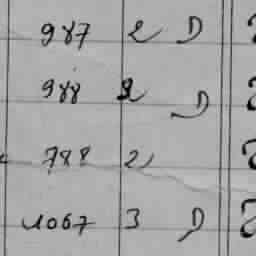 987 2 D
988 2 D
788 2
1067 3 D